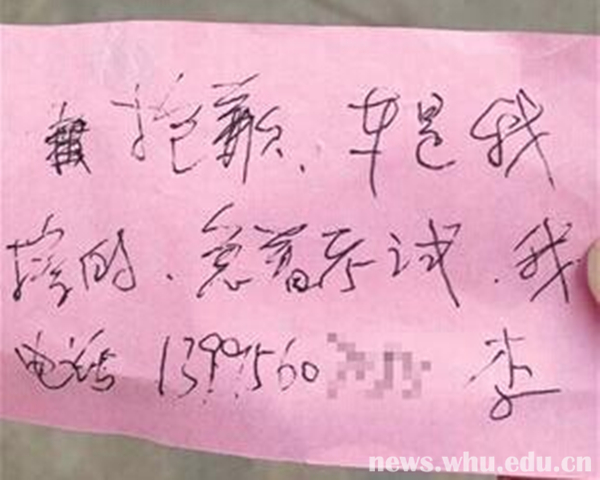 抱歉、车是我
撞的、急着考试、我
电话 1399560 李
news.whu.edu.cn